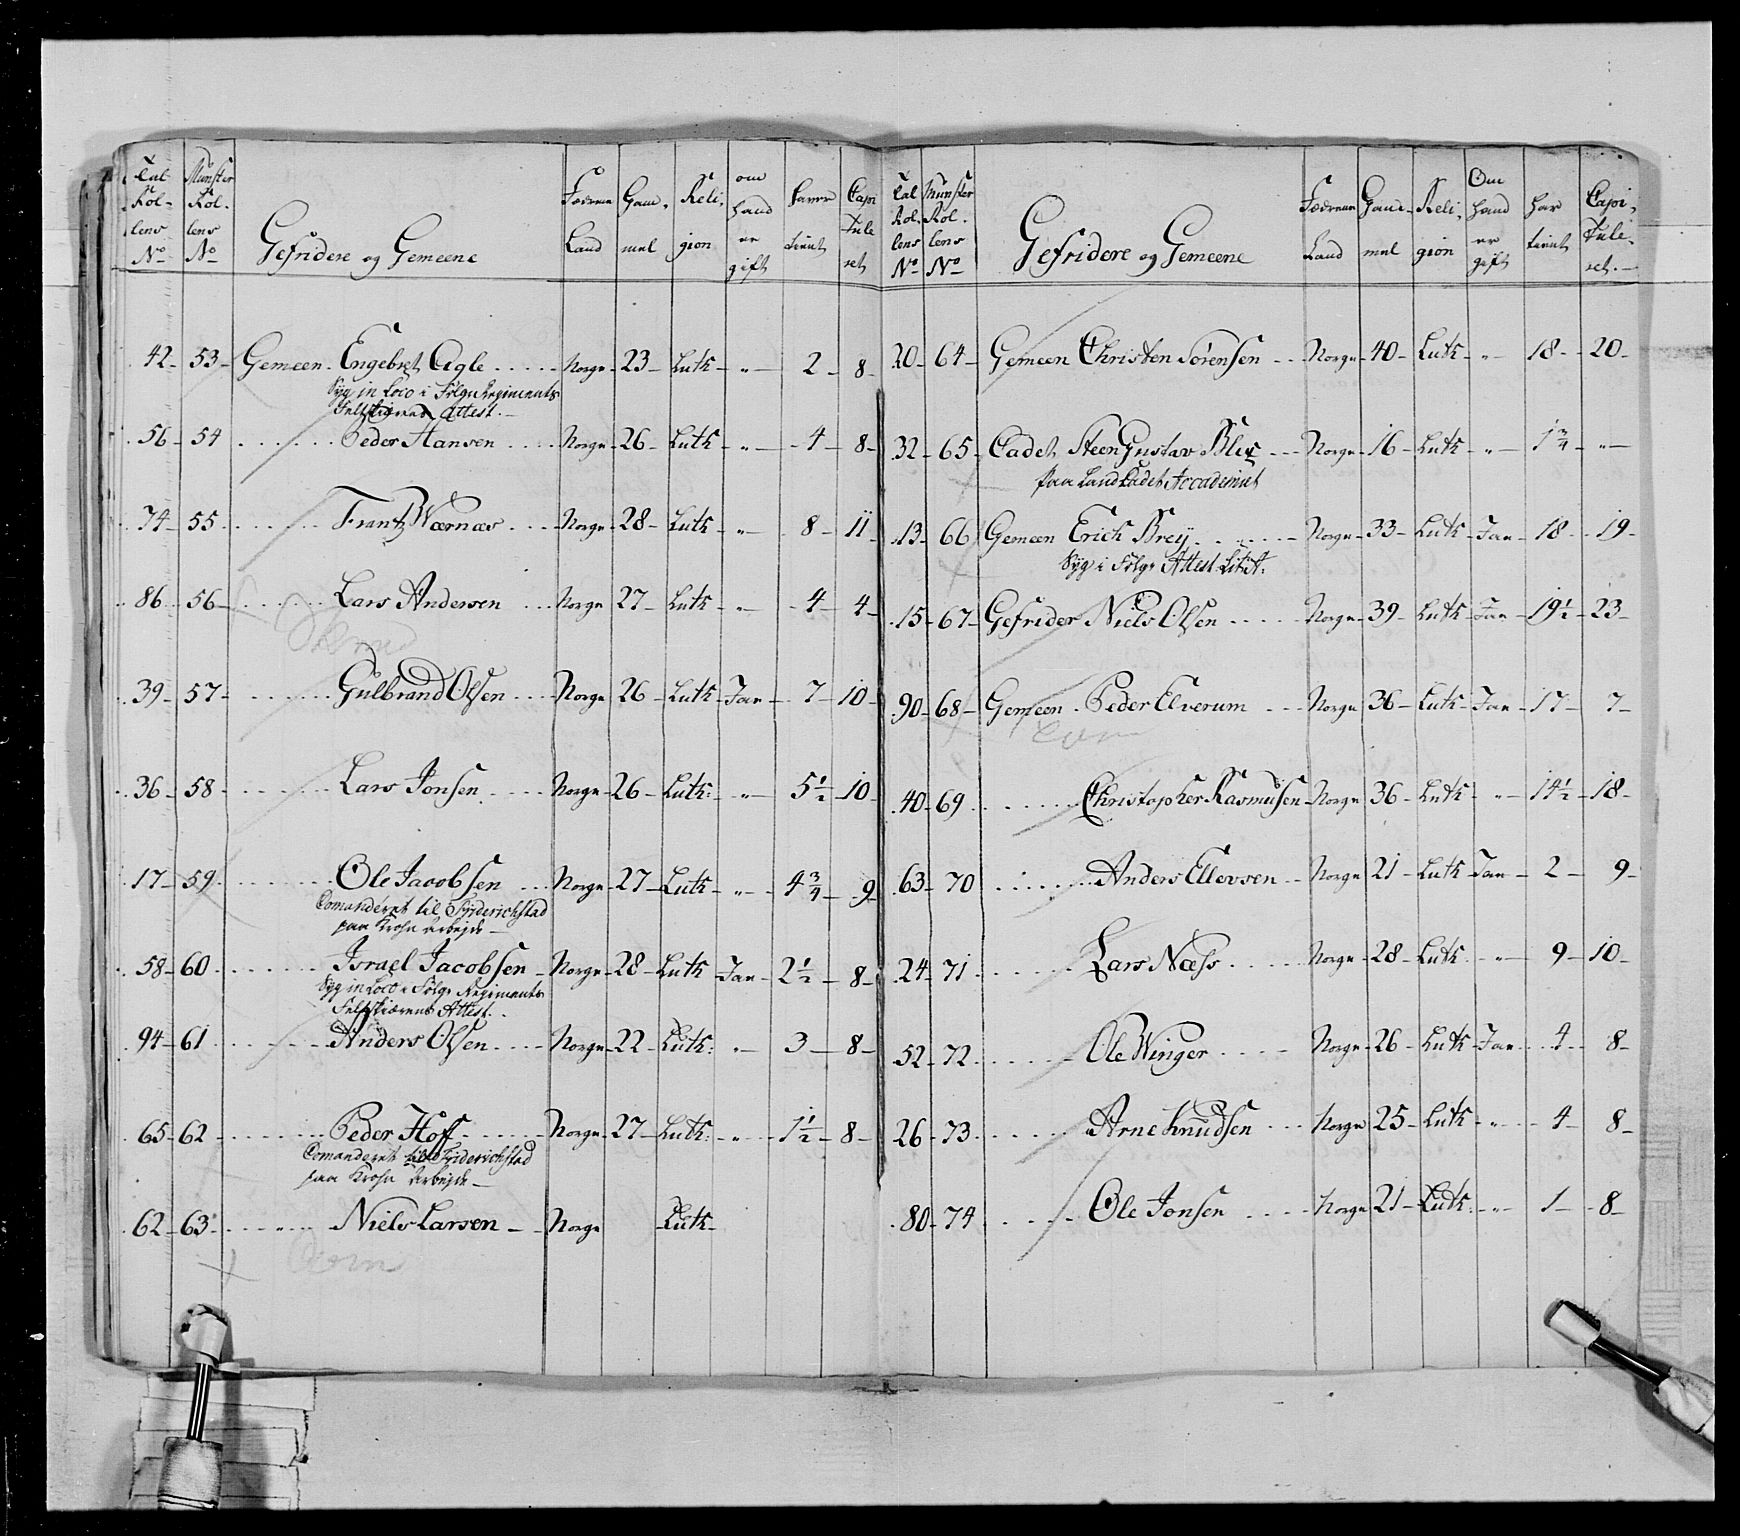 Tal Rol- lens No | Mynster Rol- lens No | Gefridere og Gemeene | Fødrene Land | Gam- mel | Reli- gion | om hand er gift | haver tient | Capi tule ret
42 - 53 - Gemeen. Engebret Agle ..... Norge - 23 - Luth - " - 2 - 8 -
Syg in Loco i Følge Regiments
Feltskierens Attest. -
56 - 54 ....... Peder Hansen .... Norge - 26 - Luth - " - 4 - 8 -
74 - 55 ....... Frantz Wærnæs .... Norge - 28 - Luth - " - 8 - 11 -
86 - 56 ....... Lars Andersen ... Norge 27 - Luth - " - 4 - 4 -
39 - 57 ....... Gulbrand Olsen ... Norge - 26 - Luth - Jae - 7 - 10 -
36 - 58 ....... Lars Jonsen ..... Norge - 26 - Luth: " - 5 1/2 - 10
17 - 59 ....... Ole Jacobsen ... Norge - 27 - Luth - " - 4 3/4 - 9 -
Comanderet til Friderichstad
paa Krohn Arbejde -
58 - 60 ....... Israel Jacobsen - Norge - 28 - Luth - Jae - 2 1/2 - 8 -
Syg in Loco i Følge Regiments
Feltskiærens Attest.
94 - 61 ....... Anders Olsen .... Norge - 22 - Luth: " - 3 - 8 -
65 - 62 ....... Peder Hoff ...... Norge - 27 - Luth: - " - 1 1/2 - 8 -
Comanderet til Friderichstad
paa Krohn Arbejde -
62 - 63 ....... Niels Larsen - - Norge Luth -
Tal Rol- lens No | Mynster Rol- lens No | Gefridere og Gemeene | Fødrene Land | Gam- mel | Reli- gion | Om hand er gift | har tient | Capi- tule- ret. -
20 - 64 - Gemeen Christen Sørensen - - Norge - 40 - Luth - " - 18 - 20 -
32 - 65 - Cadet Steen Gustav Blix - - - Norge - 16 - Luth - " - 1 3/4 - " -
paa Land Cadet Accademiet
13 - 66 Gemeen Erich Brey ....... Norge - 33 - Luth - Jae - 18 - 19 -
Syg i Følge Attest Lit: A.
15 - 67 - Gefrider Niels Olsen ..... Norge - 39 - Luth - Jae - 19 1/2 - 23 -
90 - 68 - Gemeen . Peder Elverum - - - Norge 36 - Luth - Jae - 17 - 7 -
40 - 69 ....... Christopher Rasmusen - Norge 36 - Luth - " - 14 1/2 - 18 -
63 - 70 ....... Anders Ellevsen - - Norge - 21 - Luth Jae - 2 - 9 -
24 - 71 ....... Lars Næss ..... Norge - 28 - Luth - " - 9 - 10 -
52 - 72 ....... Ole Winger .... Norge - 26 - Luth - Jae - 4 - 8 -
26 - 73 ....... Arne Knudsen ... Norge 25 - Luth - " - 4 - 8 -
80 - 74 ....... Ole Jonsen .... Norge 21 - Luth - " - 1 - 8 -